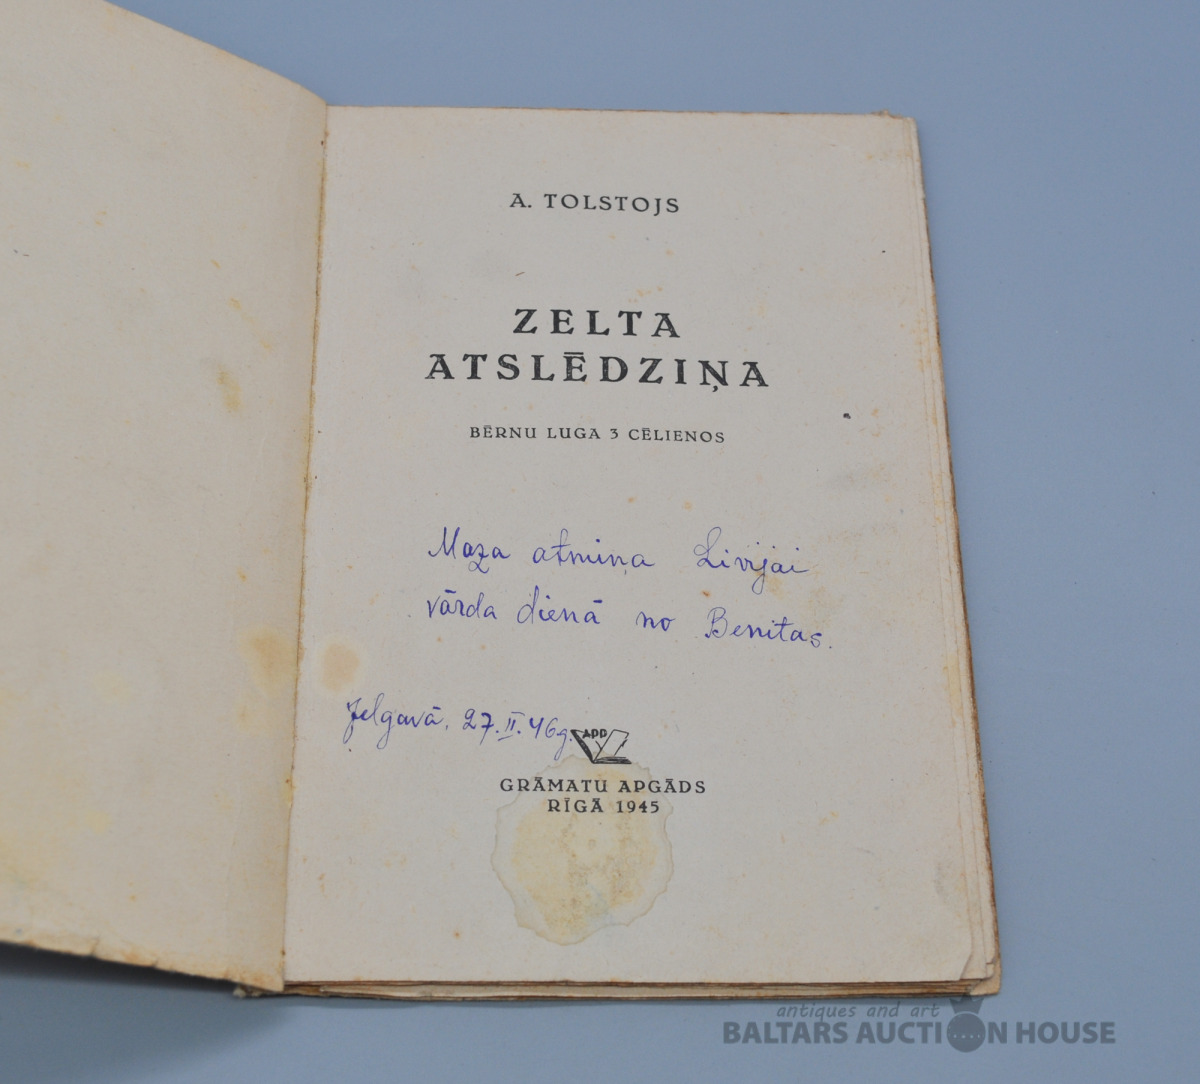 A. TOLSTOJS
ZELTA
ATSLĒDZIŅA
BĒRNU LUGA 3 CĒLIENOS
Maza atmiņa Livijai
vārda dienā no Benitas.
Jelgavā. 27.II.46g.
APP
GRĀMATU APGĀDS
RĪGĀ 1945
antiques and art
BALTARS AUCTION HOUSE